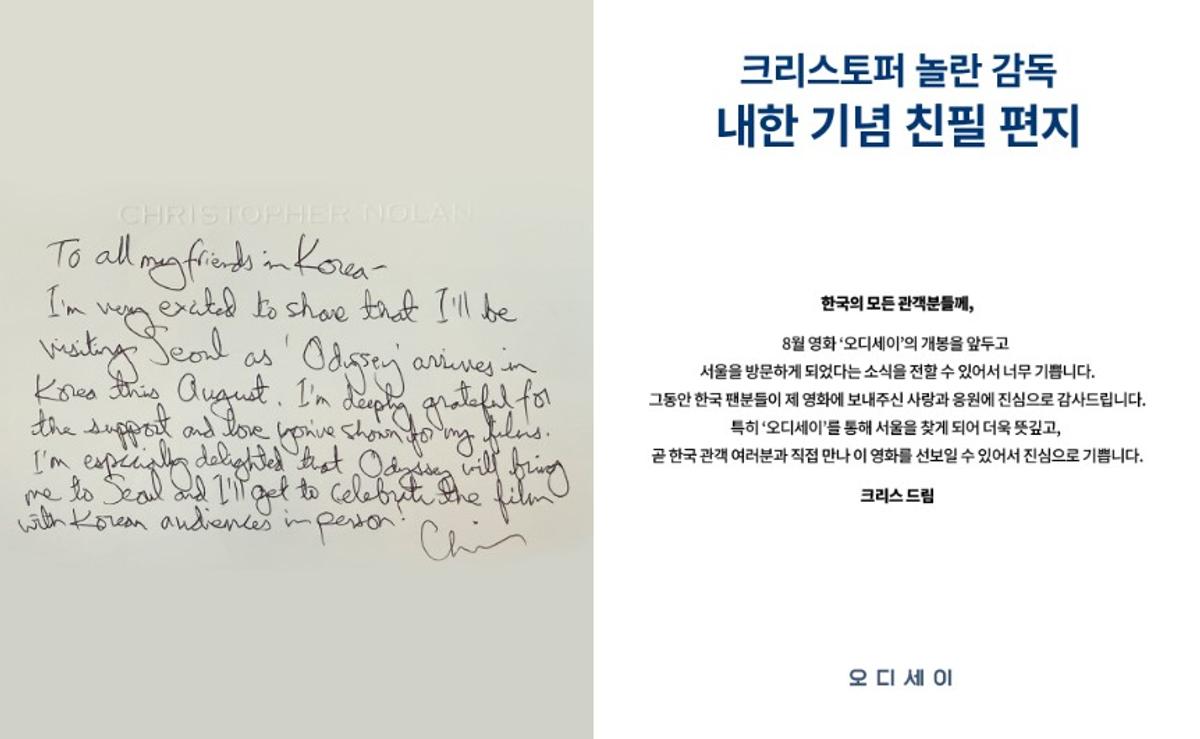 CHRISTOPHER NOLAN
To all my friends in Korea-
I'm very excited to share that I'll be
visiting Seoul as 'Odyssey' arrives in
Korea this August. I'm deeply grateful for
the support and love you've shown for my films.
I'm especially delighted that Odyssey will bring
me to Seoul and I'll get to celebrate the film
with Korean audiences in person.
Chris
크리스토퍼 놀란 감독
내한 기념 친필 편지
한국의 모든 관객분들께,
8월 영화 ‘오디세이’의 개봉을 앞두고
서울을 방문하게 되었다는 소식을 전할 수 있어서 너무 기쁩니다.
그동안 한국 팬분들이 제 영화에 보내주신 사랑과 응원에 진심으로 감사드립니다.
특히 ‘오디세이’를 통해 서울을 찾게 되어 더욱 뜻깊고,
곧 한국 관객 여러분과 직접 만나 이 영화를 선보일 수 있어서 진심으로 기쁩니다.
크리스 드림
오디세이